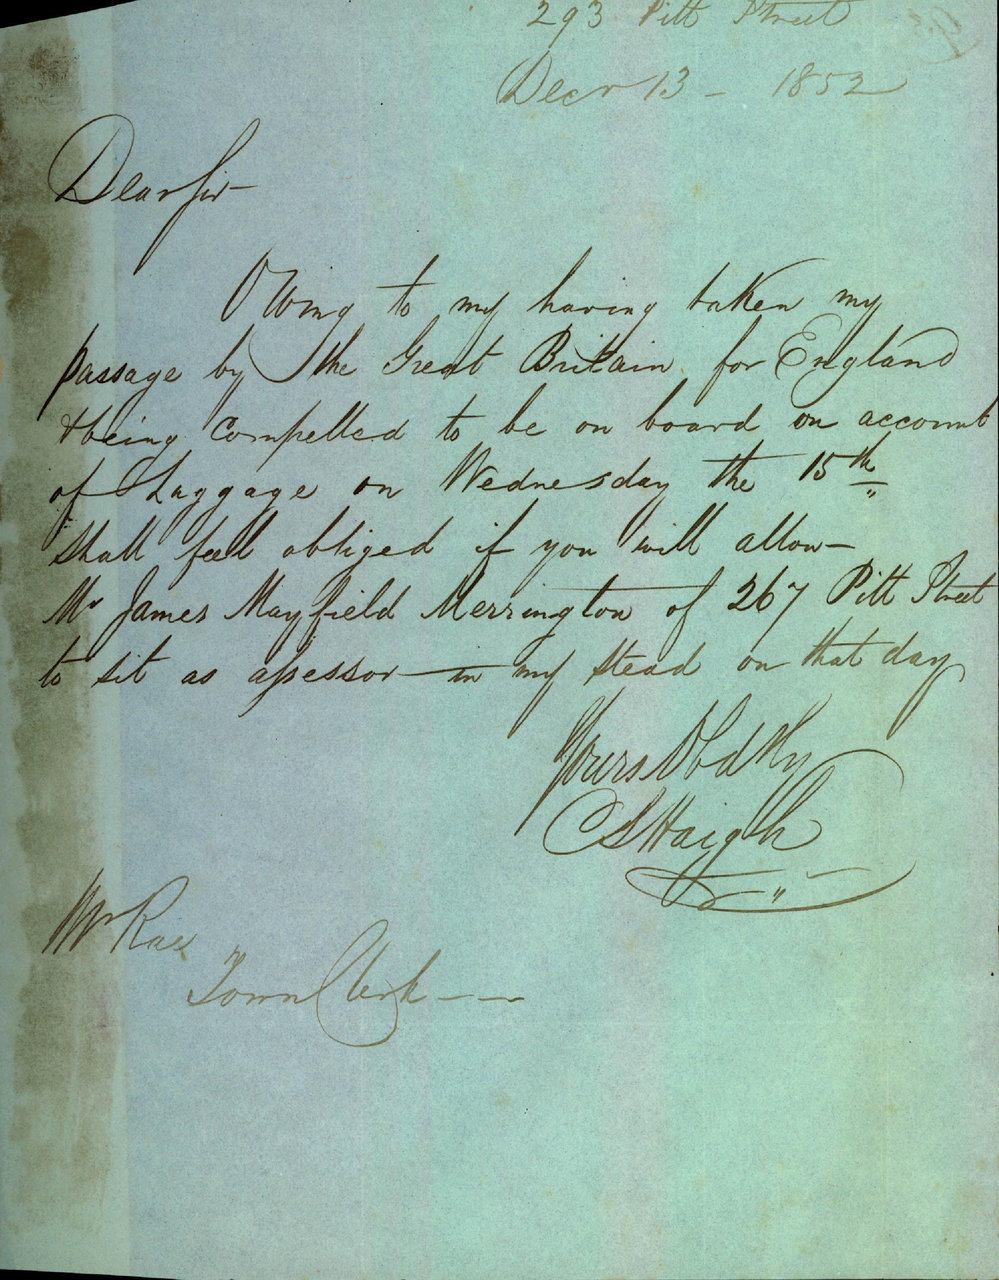 293 Pitt Street
Decr 13 - 1852
Dear Sir -
Owing to my having taken my
passage by the Great Britain for England
& being Compelled to be on board on account
of Luggage on Wednesday the 15th
shall feel obliged if you will allow -
Mr James Mayfield Merrington of 267 Pitt Street
to sit as assessor - in my stead on that day
Yours Obdtly
C S Haigh
Mr Rae
Town Clerk - -